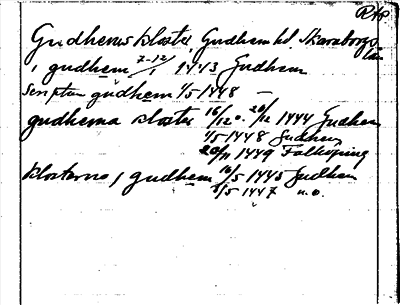 RAp
Gudhems kloster, Gudhem hd, Skaraborgs
län
i gudhem 7-12/1 1443 Gudhem
Scriptum gudhem 1/5 1448 —
gudhema kloster 16/12 o. 20/12 1444 Gudhem
1/5 1448 Gudhem
20/11 1449 Falköping
klostreno i gudhem 16/5 1445 Gudhem
1/5 1447 u.o.